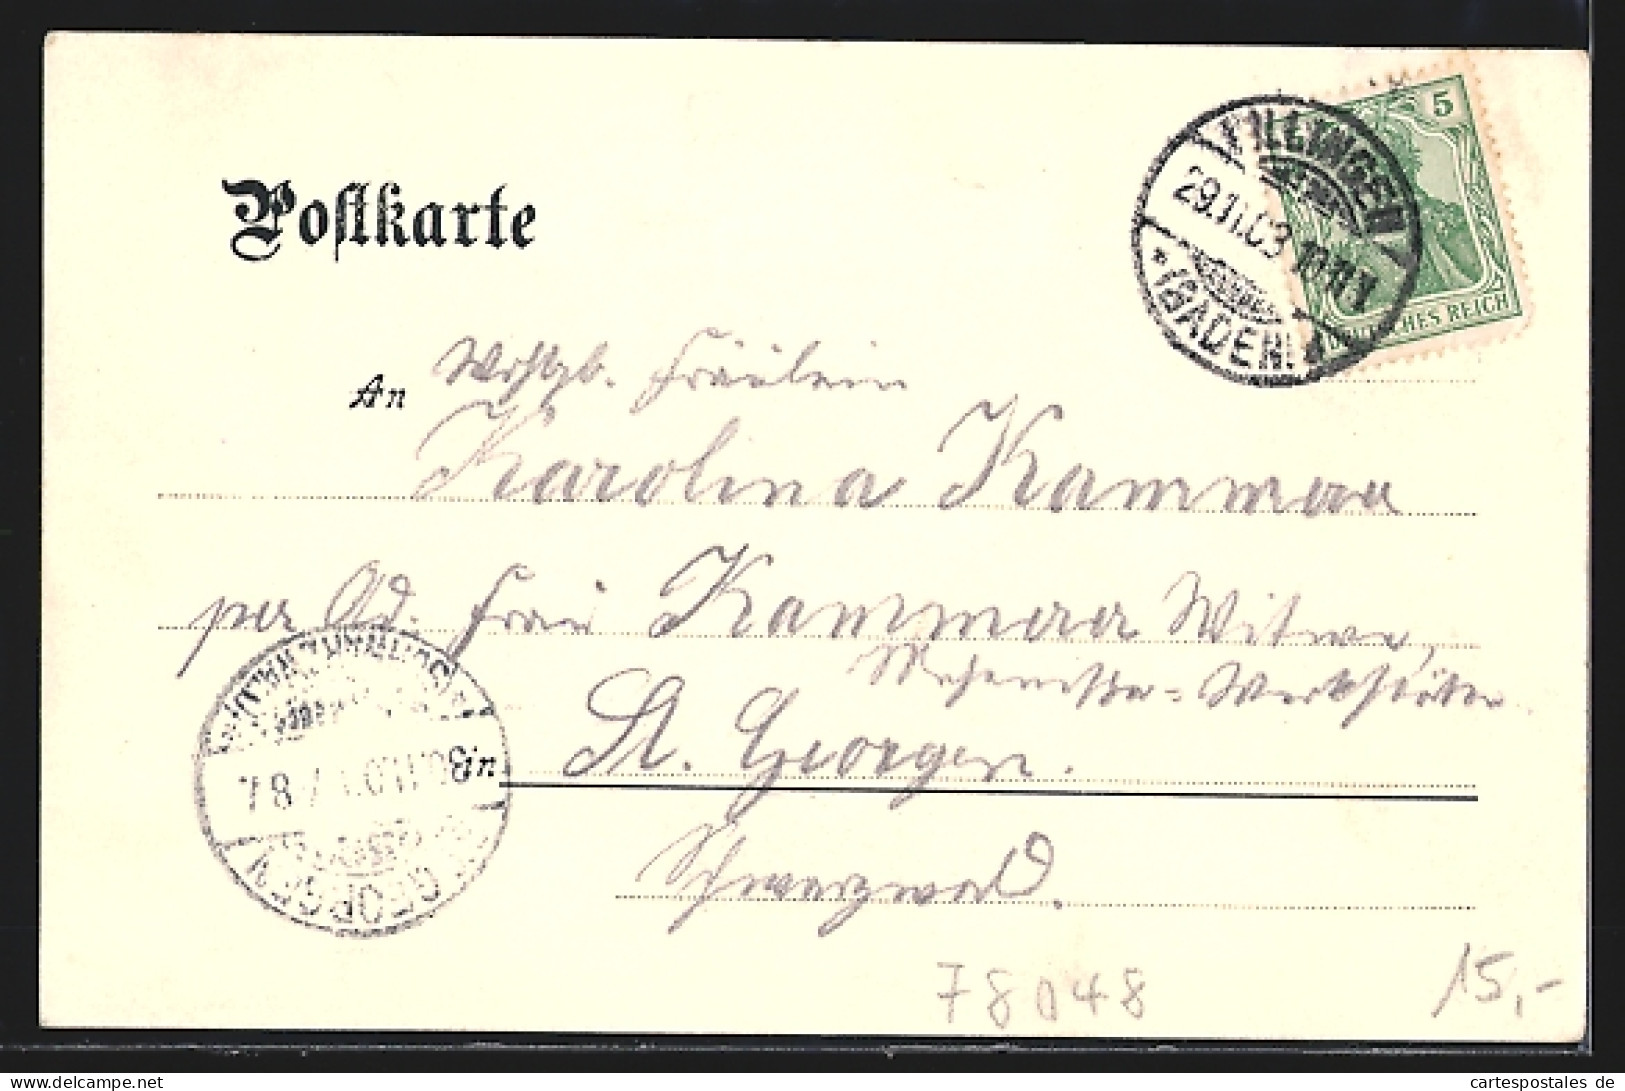 Postkarte
5
VILLINGEN
29.11.03 10-11V
* (BADEN)
DEUTSCHES REICH
An
Wohlgb. Fräulein
Karolina Kammerer
per Ad. Frau Kammerer Witwe,
Mechanische-Werkstätte
in St. Georgen.
GEORGEN
7-8
Schwarzwald.
78048
15,-
cartespostales de